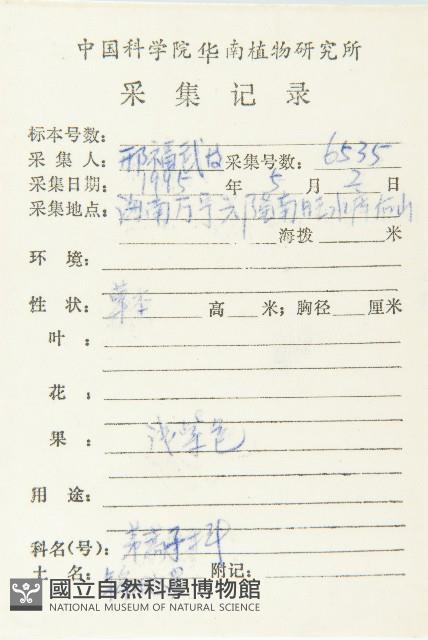 中国科学院华南植物研究所
采集记录
标本号数:
采集人: 邢福武 采集号数: 6535
采集日期: 1995 年 5 月 2 日
采集地点: 海南万宁 南旺水库
海拨 米
环境:
性状: 草本 高 米; 胸径 厘米
叶:
花:
果: 浅紫色
用途:
科名(号):
土名: 附记:
國立自然科學博物館
NATIONAL MUSEUM OF NATURAL SCIENCE